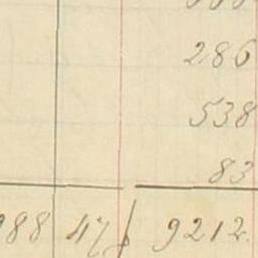 286
538
83
988 47 9212.